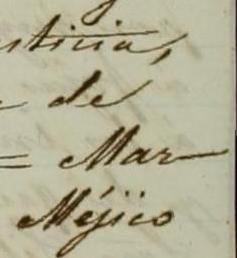 sticia,
de
= Mar-
Méjico